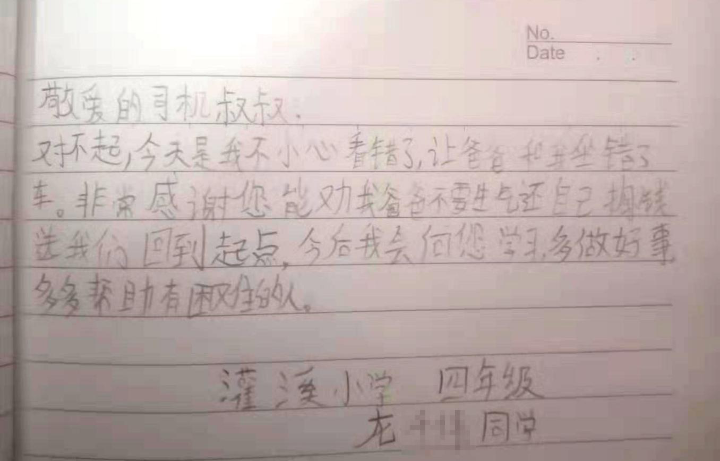 No.
Date
敬爱的司机叔叔:
对不起,今天是我不小心看错了,让爸爸和我坐错了
车。非常感谢您能劝我爸爸不要生气还自己掏钱
送我们回到起点,今后我会向您学习,多做好事
多多帮助有困难的人。
灌溪小学 四年级
龙 同学